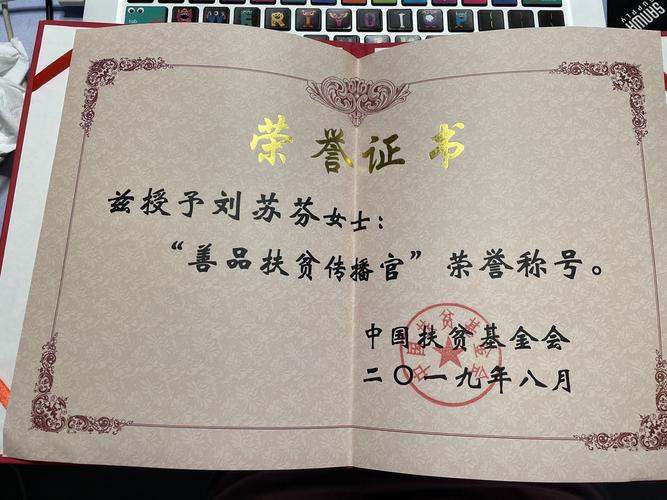 tab
Q W E R T Y U I O P
荣誉证书
兹授予刘苏芬女士：
“善品扶贫传播官”荣誉称号。
中国扶贫基金会
二〇一九年八月
中国扶贫基金会